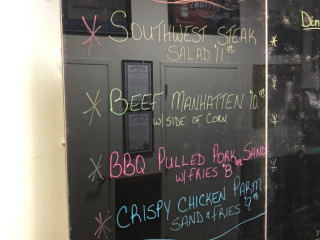 * SOUTHWEST STEAK
SALAD
* BEEF MANHATTEN
W/ SIDE OF CORN
* BBQ PULLED PORK SAND
W/ FRIES
* CRISPY CHICKEN PARM
SAND & FRIES